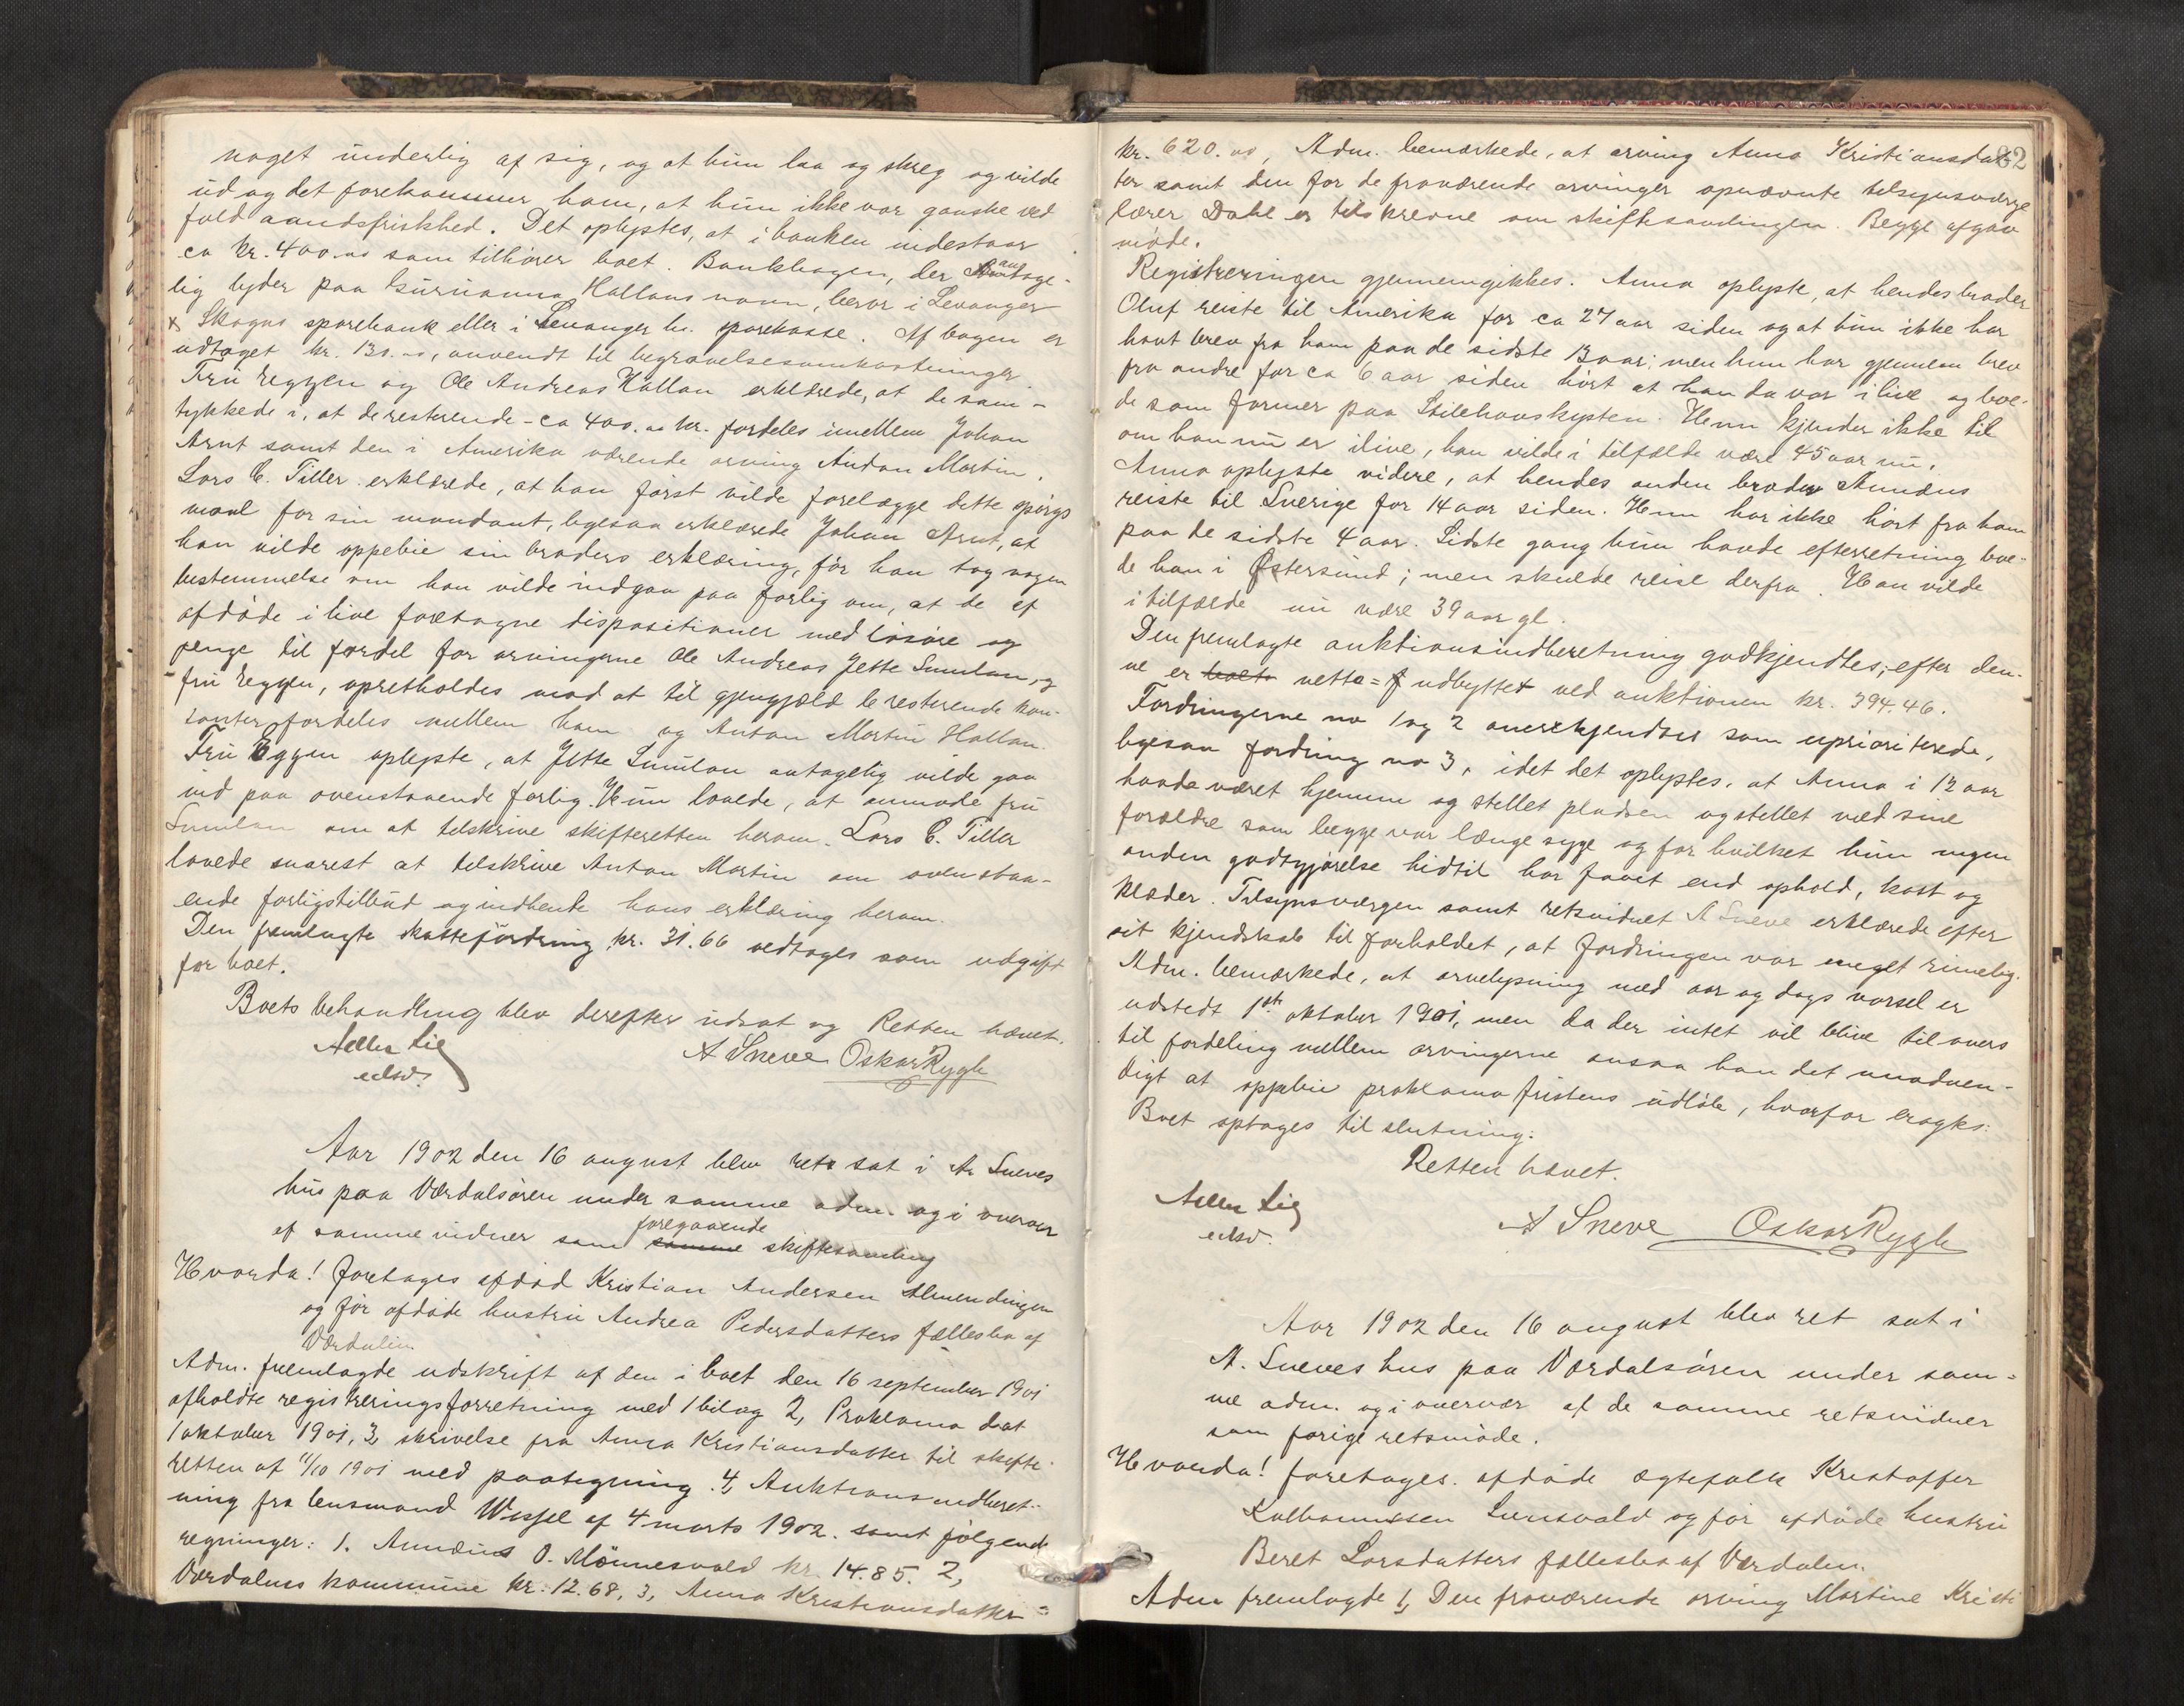 noget underlig af sig, og at hun laa og skreg og vilde
ud og det forekommer ham, at hun ikke var ganske ved
fuld aandsfriskhed. Det oplystes, at i banken indestaar
ca kr. 400.00 som tilhører boet. Bankbogen, der antage-
lig lyder paa Guruanna Hallans navn, beror i Levanger
& Skogns sparebank eller i Levanger bs. sparekasse. Af bogen er
udtaget kr. 130.00, anvendt til begravelsesomkostninger.
Fru Eggen og Ole Andreas Hallan erklærede, at de sam-
tykkede i, at de resterende - ca 400.00 kr. fordeles imellem Johan
Arnt samt den i Amerika værende arving Anton Martin.
Lars C. Tiller erklærede, at han først vilde forelægge dette spørgs
maal for sin mandant, ligesaa erklærede Johan Arnt, at
han vilde oppebie sin broders erklæring, før han tog nogen
bestemmelse om han vilde indgaa paa forlig om, at de af
afdøde i live foretagne dispositioner med løsøre og
penge til fordel for arvingerne Ole Andreas, Jette Sumlan, og
fru Eggen, opretholdes mod at til gjengjæld de resterende kon-
tanter fordeles mellem ham og Anton Martin Hallan.
Fru Eggen oplyste, at Jette Sumlan antagelig vilde gaa
ind paa ovenstaaende forlig. Hun lovede, at anmode fru
Sumlan om at tilskrive skifteretten herom. Lars C. Tiller
lovede snarest at tilskrive Anton Martin om ovenstaa-
ende forligstilbud og indhente hans erklæring herom.
Den fremlagte skattefordring kr. 31.66 vedtages som udgift
for boet.
Boets behandling blev derefter udsat og Retten hævet.
A Sneve Oskar Rygh
Aar 1902 den 16 august blev ret sat i A. Sneves
hus paa Værdalsøren under samme adm. og i overvær
af samme vidner som samme foregaaende skiftesamling
Hvorda! foretages afdød Kristian Andersen Almendingen
og før afdøde hustru Andrea Pedersdatters fællesbo af
Værdalen.
Adm. fremlagde udskrift af den i boet den 16 september 1901
afholdte registreringsforretning med 1 bilag 2, Proklama dat
1 oktober 1901, 3, skrivelse fra Anna Kristiansdatter til skifte-
retten af 11/10 1901 med paategning. 4, Auktionsindberet-
ning fra lensmand Wessel af 4 marts 1902. samt følgende
regninger: 1. Annæus O. Mønnesvald kr. 14.85. 2,
Værdalens kommune kr. 12.68, 3, Anna Kristiansdatter =
82
kr. 620.00, Adm. bemærkede, at arving Anna Kristiansdat-
ter samt den for de fraværende arvinger opnævnte tilsynsværge
lærer Dahl er tilskrevne om skiftesamlingen. Begge afgav
møde.
Registreringen gjennemgikkes. Anna oplyste, at hendes broder
Oluf reiste til Amerika for ca 27 aar siden og at hun ikke har
havt brev fra ham paa de sidste 13 aar; men hun har gjennem brev
fra andre for ca 6 aar siden hørt at han da var i live og boe-
de som farmer paa Stillehavskysten. Hun kjender ikke til
om han nu er ilive, han vilde i tilfælde være 45 aar nu.
Anna oplyste videre, at hendes anden broder Annæus
reiste til Sverige for 14 aar siden. Hun har ikke hørt fra ham
paa de sidste 4 aar. Sidste gang hun havde efterretning boe-
de han i Østersund; men skulde reise derfra. Han vilde
i tilfælde nu være 39 aar gl.
Den fremlagte auktionsindberetning godkjendtes; efter den-
ne er boets netto = udbyttet ved auktionen kr. 394.46.
Fordringerne no 1 og 2 anerkjendtes som uprioriterede,
ligesaa fordring no 3, idet det oplystes, at Anna i 12 aar
havde været hjemme og stellet pladsen og stellet med sine
forældre som begge var længe syge og for hvilket hun ingen
anden godtgjørelse hidtil har faaet end ophold, kost og
klæder. Tilsynsværgen samt retsvidnet A Sneve erklærede efter
sit kjendskab til forholdet, at fordringen var meget rimelig.
Adm. bemærkede, at arvelysning med aar og dags varsel er
udstedt 1ste oktober 1901, men da der intet vil blive tilovers
til fordeling mellem arvingerne ansaa han det unødven-
digt at oppebie proklama fristens udløb, hvorfor eragtes:
Boet optages til slutning.
Retten hævet.
A Sneve Oskar Rygh
Aar 1902 den 16 august blev ret sat i
A. Sneves hus paa Værdalsøren under sam-
me adm. og i overvær af de samme retsvidner
som forige retsmøde.
Hvorda! foretages afdøde ægtefolk Kristoffer
Sunsvald og før afdøde hustru
Beret Larsdatters fællesbo af Værdalen.
Adm fremlagde 1, Den fraværende arving Martine Kristi